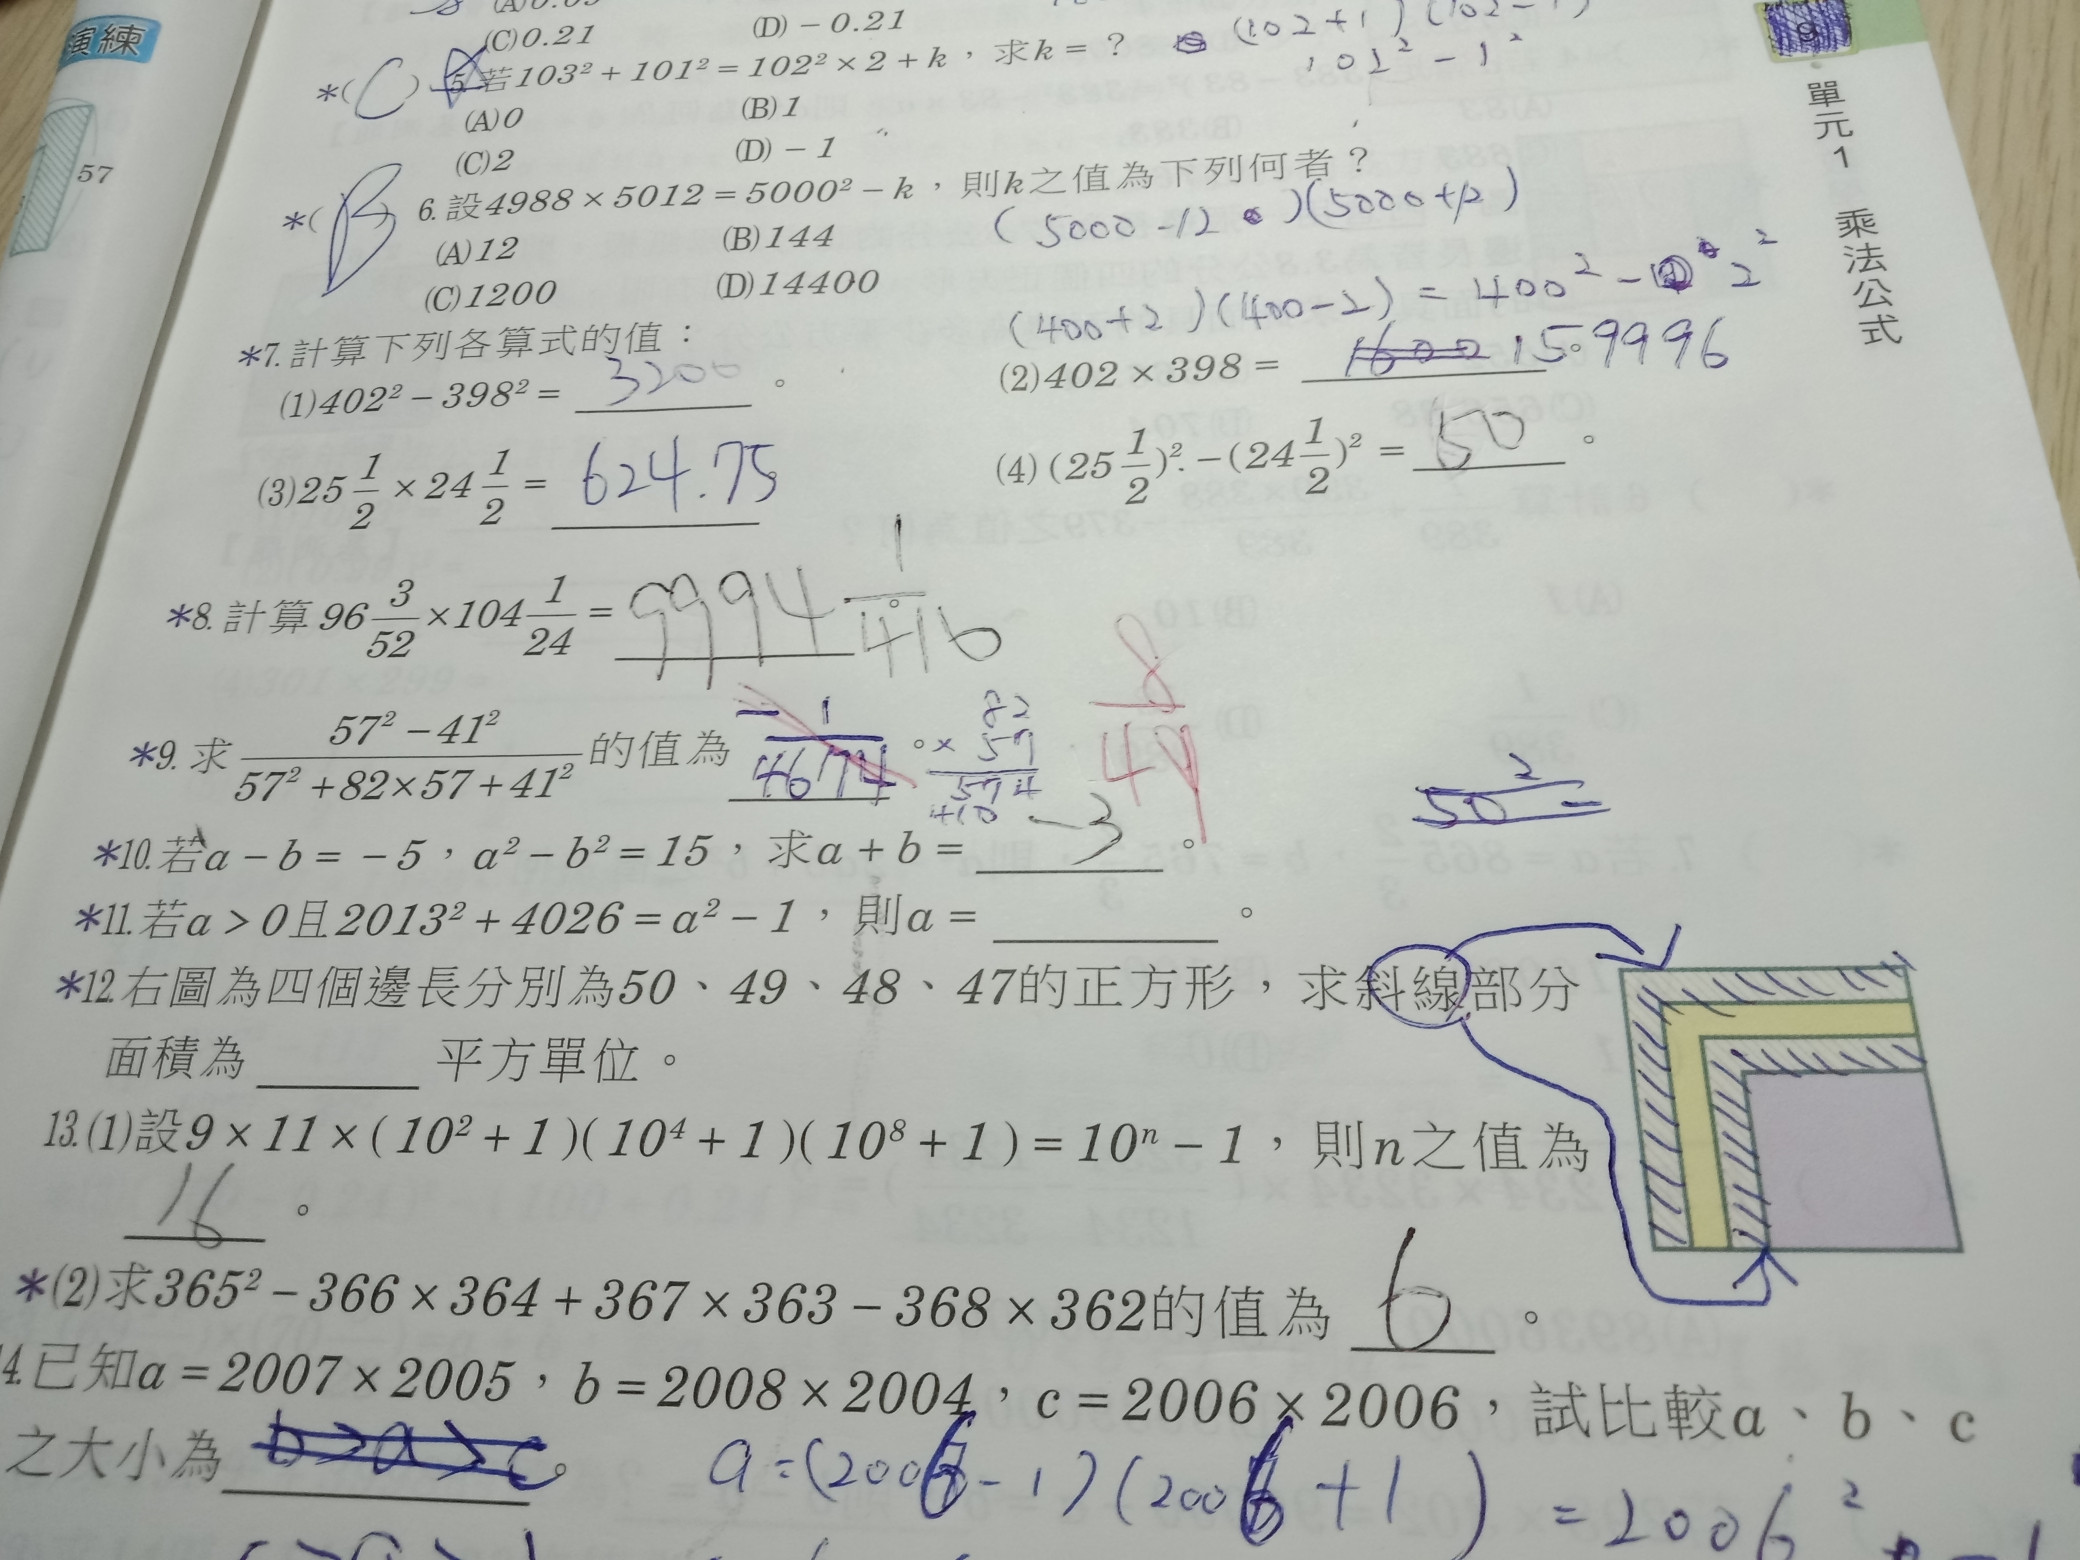 演練
57
(C)0.21 (D)－0.21
(102+1)(102-1)
*( C ) 5.若103²＋101²＝102²×2＋k，求k＝？
101² - 1²
(A)0 (B)1
(C)2 (D)－1
*( B ) 6.設4988×5012＝5000²－k，則k之值為下列何者？
(5000-12)(5000+12)
(A)12 (B)144
(C)1200 (D)14400
(400+2)(400-2) = 400² - 2²
*7.計算下列各算式的值：
(1)402²－398²＝ 3200 。 (2)402×398＝ 1600 15.9996
(3)25 1/2 ×24 1/2 ＝ 624.75 (4) (25 1/2)²－(24 1/2)² ＝ 50 。
*8.計算 96 3/52 ×104 1/24 ＝ 9994 1/416 。
*9.求 (57²－41²)/(57²＋82×57＋41²) 的值為 1/46774 。 8/49
82
×57
574
410
2
50 =
*10.若a－b＝－5，a²－b²＝15，求a＋b＝ -3 。
*11.若a＞0且2013²＋4026＝a²－1，則a＝ 。
*12.右圖為四個邊長分別為50、49、48、47的正方形，求斜線部分
面積為 平方單位。
13.(1)設9×11×(10²＋1)(10⁴＋1)(10⁸＋1)＝10ⁿ－1，則n之值為
16 。
*(2)求365²－366×364＋367×363－368×362的值為 6 。
4.已知a＝2007×2005，b＝2008×2004，c＝2006×2006，試比較a、b、c
之大小為 b>a>c 。
a=(2006-1)(2006+1) = 2006² - 1
c>a>b
9
單元1 乘法公式